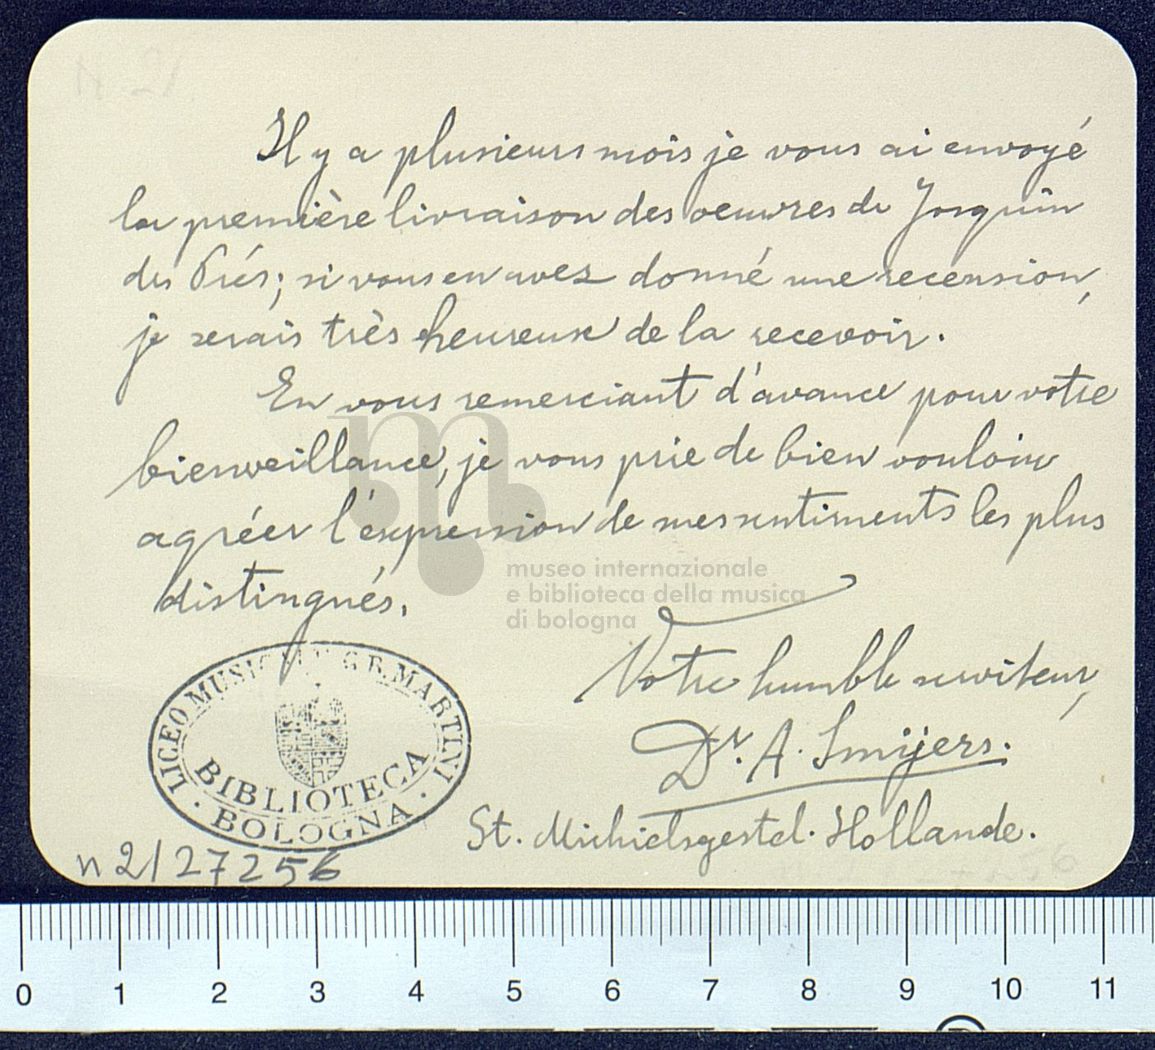 Il y a plusieurs mois je vous ai envoyé
la première livraison des oeuvres de Josquin
des Prés; si vous en avez donné une recension,
je serais très heureux de la recevoir.
En vous remerciant d'avance pour votre
bienveillance, je vous prie de bien vouloir
agréer l'expression de mes sentiments les plus
distingués.
museo internazionale
e biblioteca della musica
di bologna
Votre humble serviteur,
Dr. A. Smijers.
St. Michielsgestel. Hollande.
LICEO MUSICALE G.B. MARTINI
BIBLIOTECA
BOLOGNA
n 2/27256
0 1 2 3 4 5 6 7 8 9 10 11